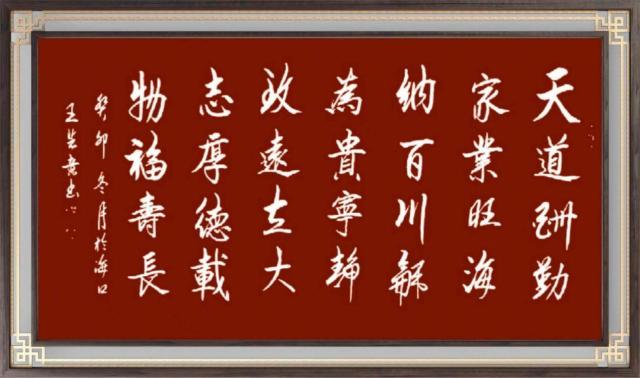 天道酬勤
家業旺海
納百川龢
為貴寧静
致遠立大
志厚德載
物福壽長
癸卯冬月於海口
王